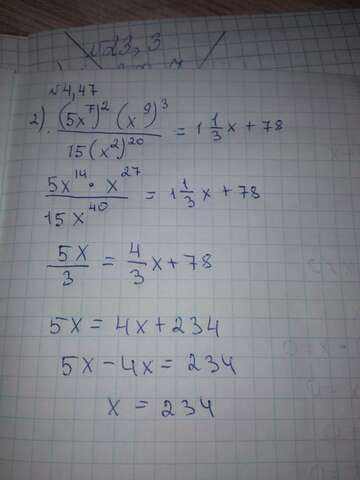 №23,3
№4,47
2). (5x⁷)² (x⁹)³ / 15(x²)²⁰ = 1 1/3 x + 78
5x¹⁴ · x²⁷ / 15x⁴⁰ = 1 1/3 x + 78
5x/3 = 4/3 x + 78
5x = 4x + 234
5x - 4x = 234
x = 234